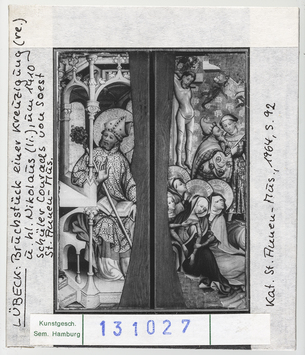 LÜBECK: Bruchstück einer Kreuzigung (re.)
u. hl. Nikolaus (li.), um 1410
Schüler Conrads von Soest
St. Annen-Mus.
Kat. St. Annen-Mus., 1964, S. 92
Kunstgesch.
Sem. Hamburg
131027